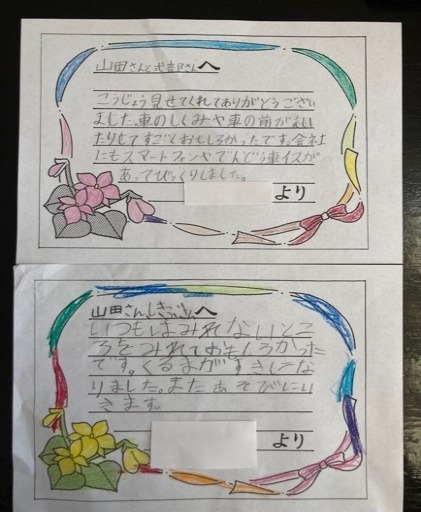 山田さんと弐部さんへ
こうじょう見せてくれてありがとうござい
ました。車のしくみや車の前がみれ
たりもてすごくおもしろかったです。会社
にもスマートフォンやでんどう車イスが
あってびっくりしました。
より
山田さん、しきぶさんへ
いつもはみれないとこ
ろをみれておもしろかった
です。くるまがすきにな
りました。またあそびにい
きます。
より